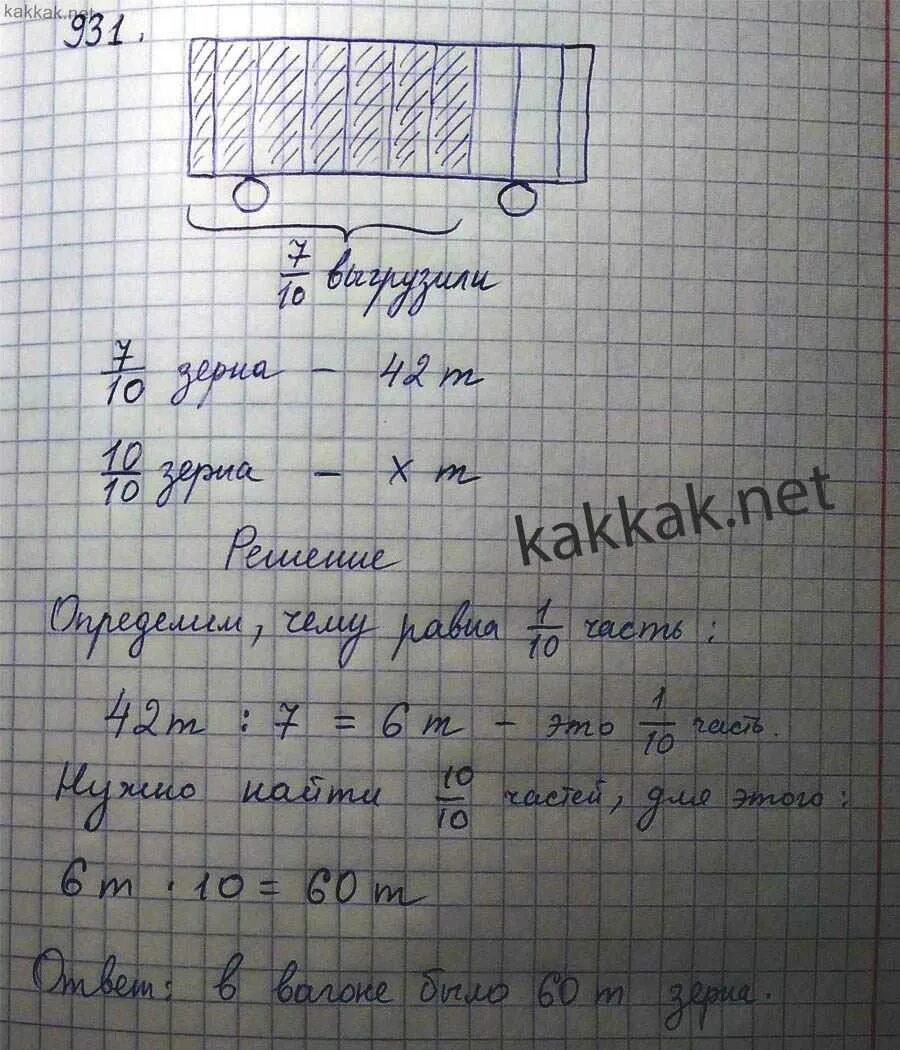 kakkak.net
931.
7/10 выгрузили
7/10 зерна - 42 т
10/10 зерна - x т
kakkak.net
Решение
Определим, чему равна 1/10 часть:
42т : 7 = 6 т - это 1/10 часть.
Нужно найти 10/10 частей, для этого:
6 т · 10 = 60 т
Ответ: в вагоне было 60 т зерна.